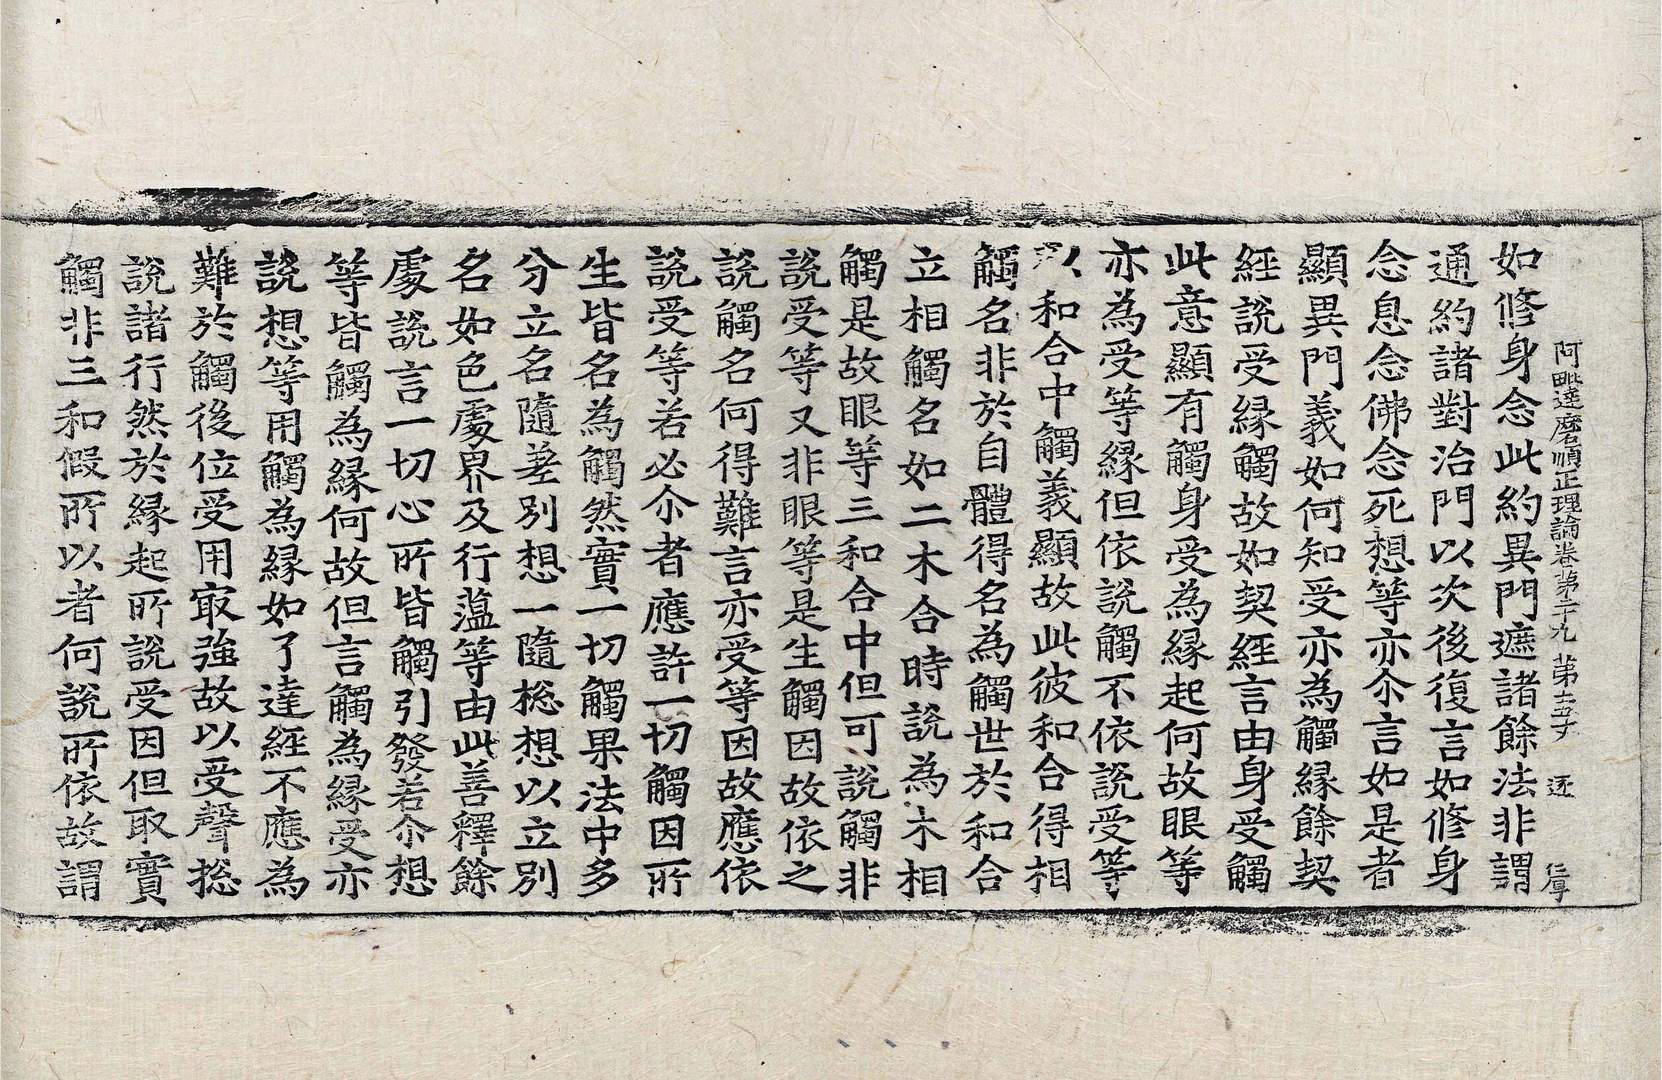 阿毗達磨順正理論卷第二十九 第十五丈 逐 仁厚
如修身念此約異門遮諸餘法非謂
通約諸對治門以次後復言如修身
念息念佛念死想等亦尒言如是者
顯異門義如何知受亦為觸緣餘契
經說受緣觸故如契經言由身受觸
此意顯有觸身受為緣起何故眼等
亦為受等緣但依說觸不依說受等
以和合中觸義顯故此彼和合得相
觸名非於自體得名為觸世於和合
立相觸名如二木合時說為木相
觸是故眼等三和合中但可說觸非
說受等又非眼等是生觸因故依之
說觸名何得難言亦受等因故應依
說受等若必尒者應許一切觸因所
生皆名為觸然實一切觸果法中多
分立名隨差別想一隨揔想以立別
名如色處界及行薀等由此善釋餘
處說言一切心所皆觸引發若尒想
等皆觸為緣何故但言觸為緣受亦
說想等用觸為緣如了達經不應為
難於觸後位受用㝡強故以受聲揔
說諸行然於緣起所說受因但取實
觸非三和假所以者何說所依故謂